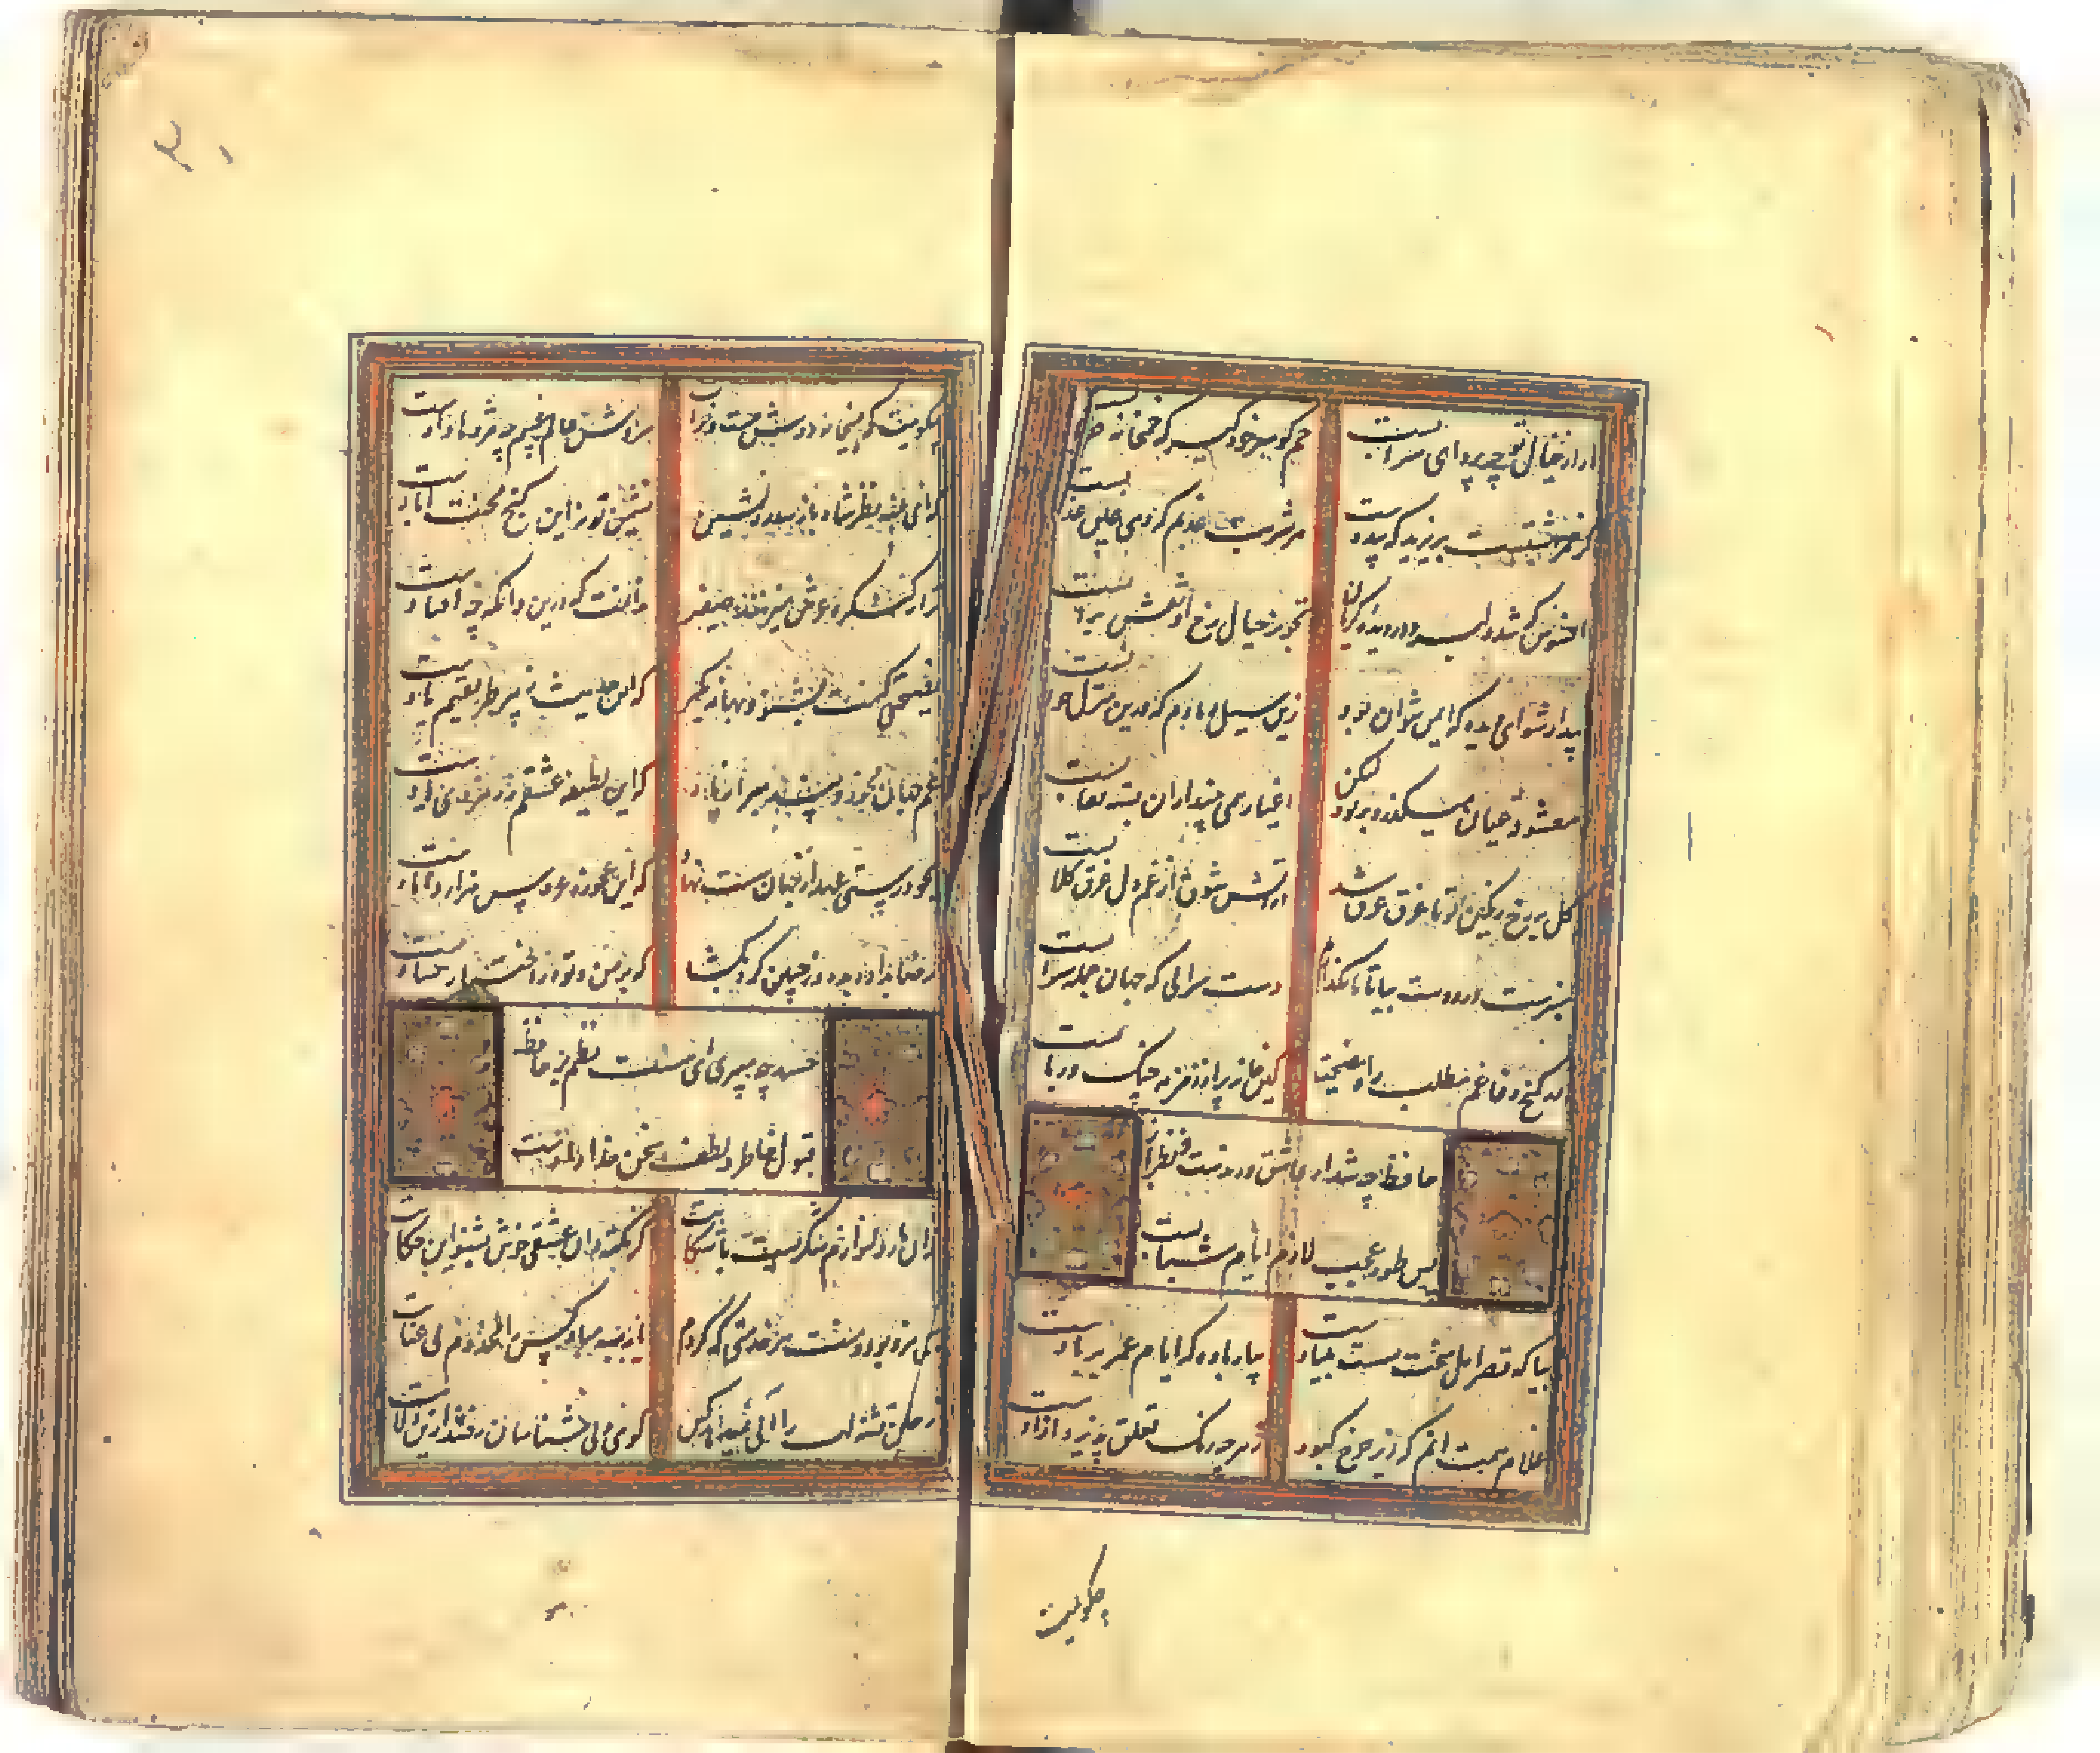 ما را ز خیال تو چه پروای شراب است خم گو سر خود گیر که خمخانه خراب است
گر خمر بهشتست بریزید که بی دوست هر شربت عذبم که دهی عین عذابست
افسوس که شد دلبر و در دیده گریان تحریر خیال رخ او نقش بر آبست
بیدار شو ای دیده که ایمن نتوان بود زین سیل دمادم که درین منزل خوابست
معشوقه عیان میگذرد بر تو ولیکن اغیار همی بیند از آن بسته نقابست
گل بر رخ رنگین تو تا غرق عرق شد در آتش شوق از غم دل غرق گلابست
سبزست در و دشت بیا تا نگذاریم دست از سر آبی که جهان جمله سرابست
در کنج دماغم مطلب جای نصیحت کین خانه پر از زمزمه چنگ و ربابست
حافظ چه شد ار عاشق و رندست و نظرباز
بس طور عجب لازم ایام شبابست
بیا که قصر امل سخت سست بنیادست بیار باده که ایام عمر بر بادست
غلام همت آنم که زیر چرخ کبود ز هر چه رنگ تعلق پذیرد آزادست
چگویمت
چگویمت که بمیخانه دوش مست و خراب سروش عالم غیبم چه مژده‌ها دادست
که ای بلند نظر شاه باز سدره نشین نشیمن تو نه این کنج محنت آبادست
ترا ز کنگره عرش میزنند صفیر ندانمت که درین دامگه چه افتادست
نصیحتی کنمت بشنو و بهانه مگیر که این حدیث ز پیر طریقتم یادست
غم جهان مخور و پند من مبر از یاد که این لطیفه عشقم ز رهروی یادست
مجو درستی عهد از جهان سست نهاد که این عجوزه عروس هزار دامادست
رضا بداده بده وز جبین گره بگشا که بر من و تو در اختیار نگشادست
حسد چه میبری ای سست نظم بر حافظ
قبول خاطر و لطف سخن خدا دادست
زان یار دلنوازم شکریست با شکایت گر نکته دان عشقی خوش بشنو این حکایت
بی مزد بود و منت هر خدمتی که کردم یارب مباد کس را مخدوم بی عنایت
رندان تشنه لب را آبی نمیدهد کس گویی ولی شناسان رفتند ازین ولایت